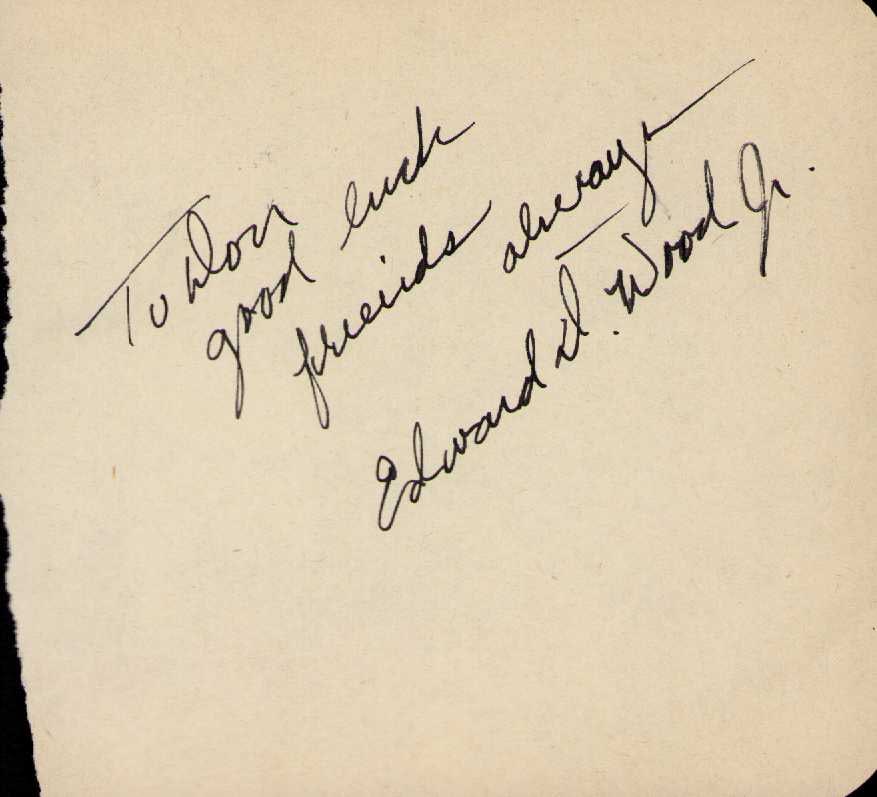 To Don
good luck
frueids always
Edward D. Wood Jr.